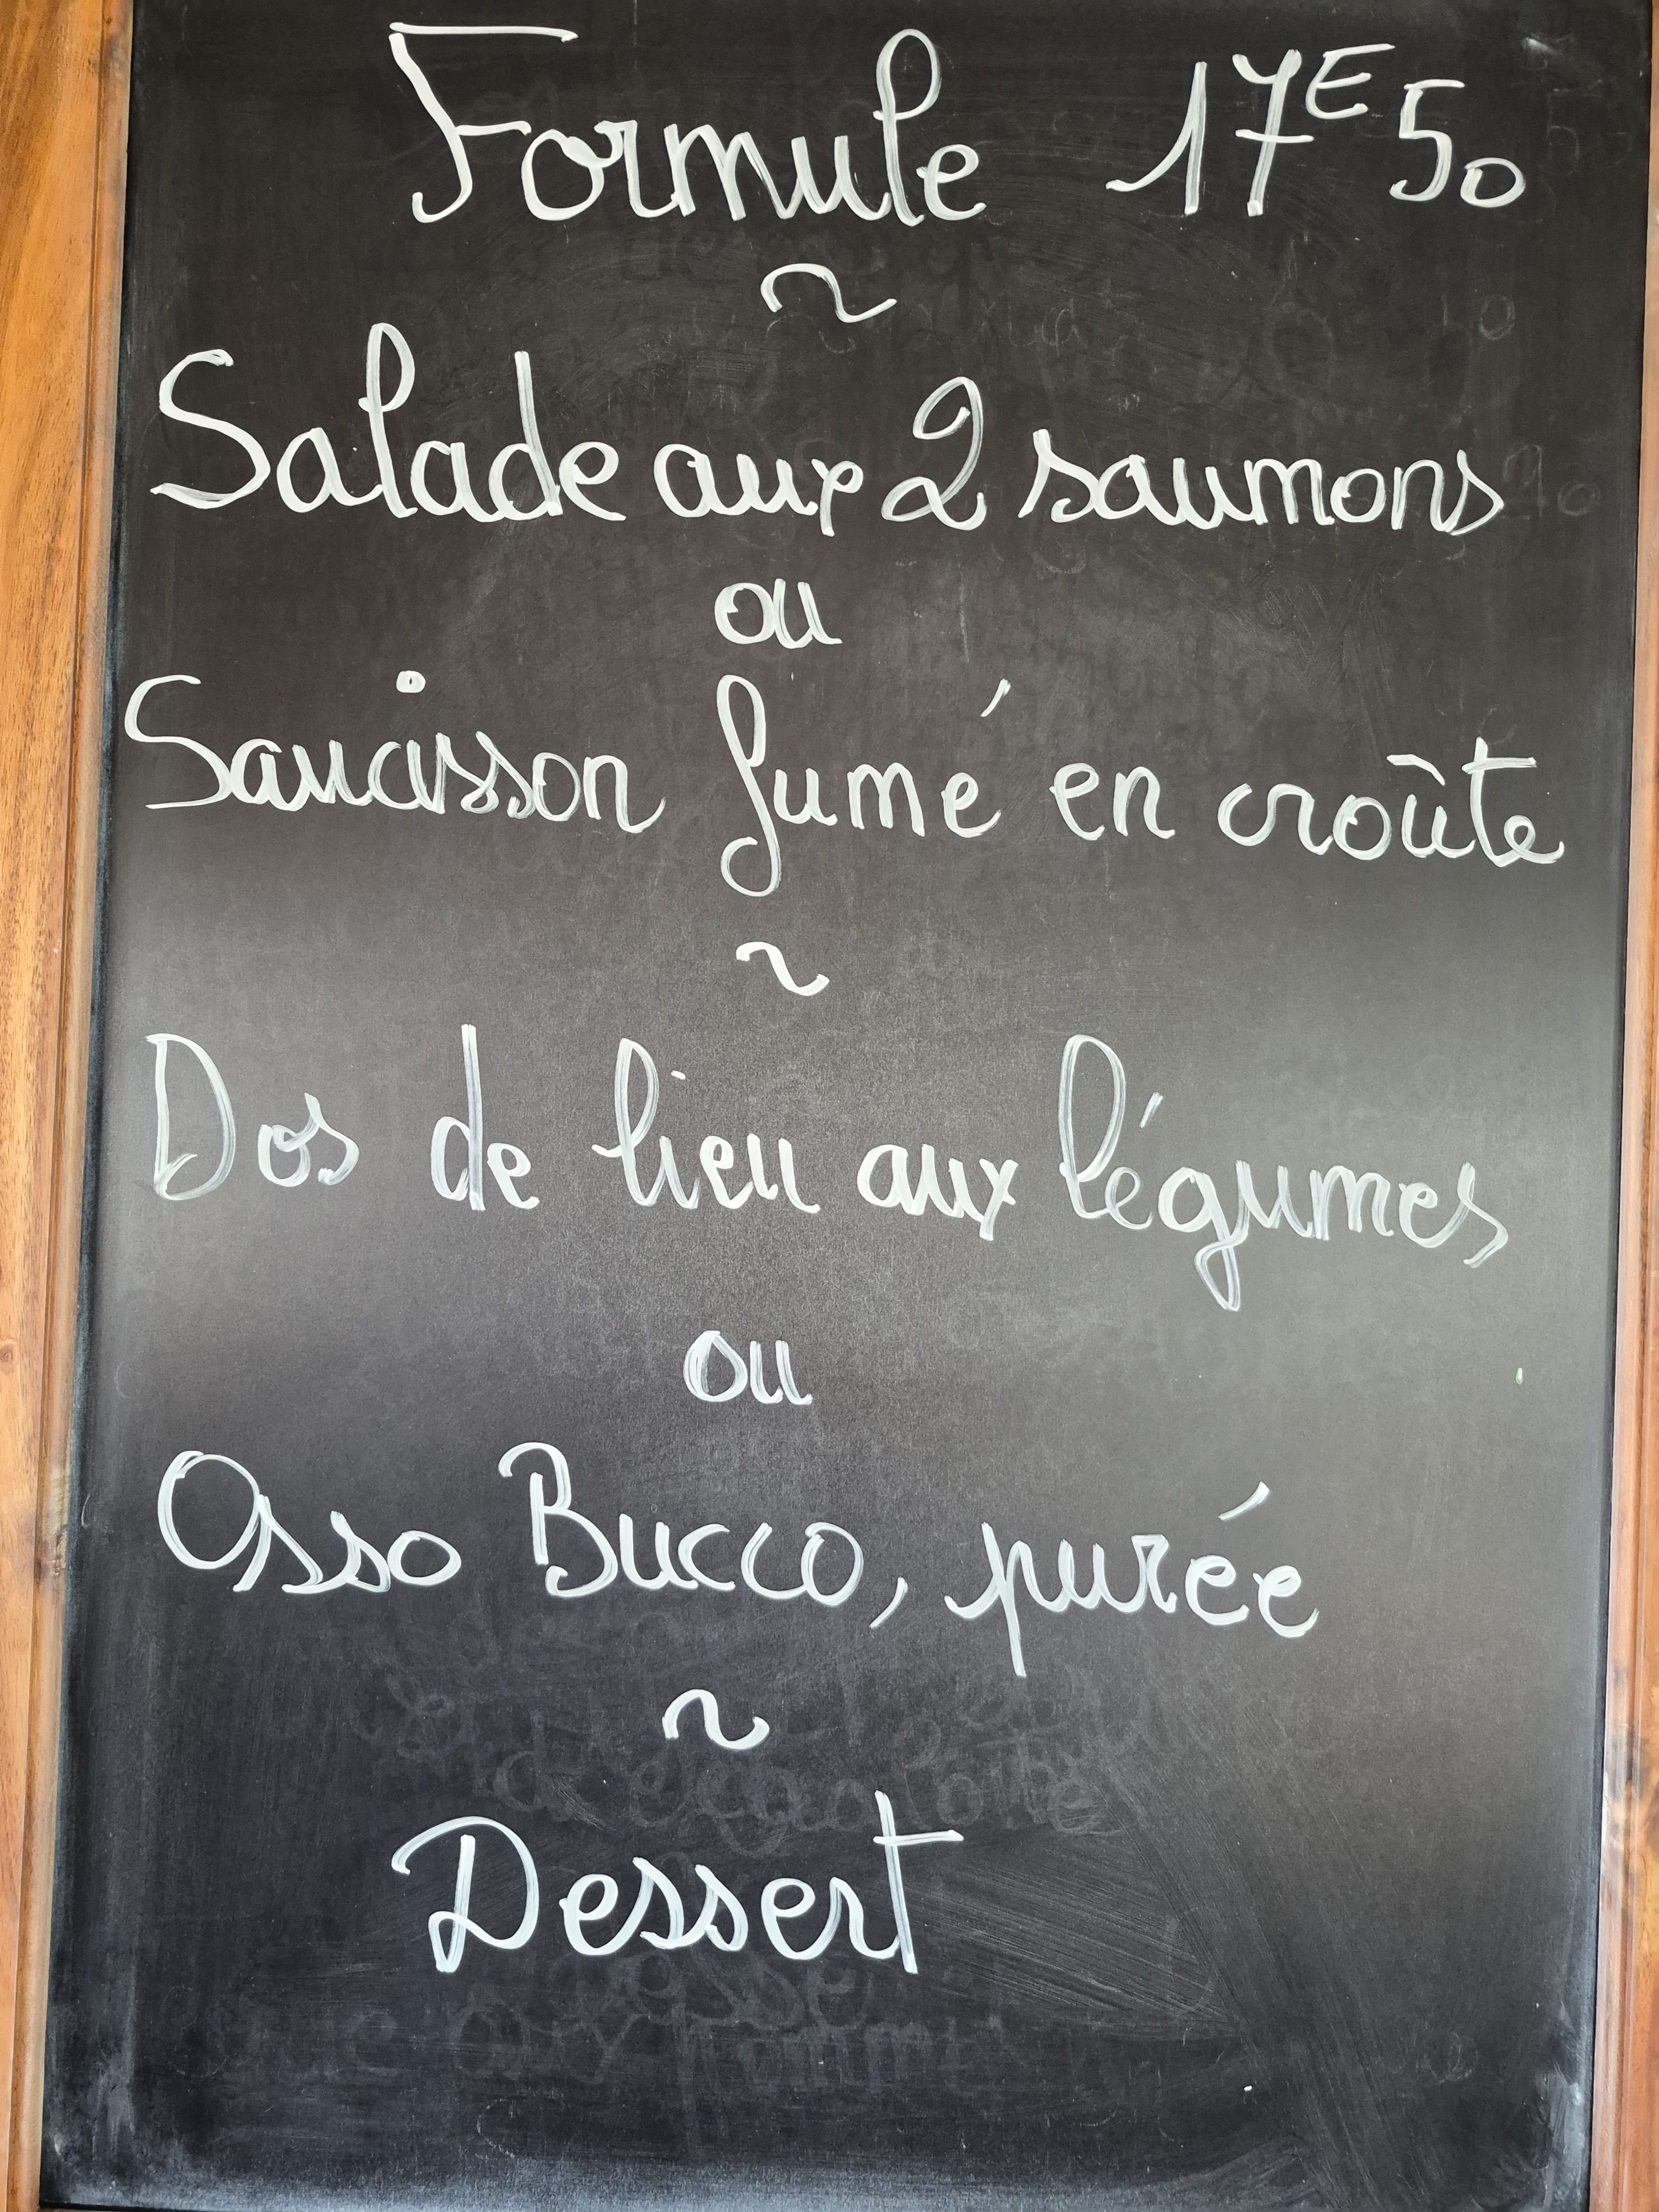 Formule 17E50
~
Salade aux 2 saumons
ou
Saucisson fumé en croûte
~
Dos de lieu aux légumes
ou
Osso Bucco, purée
~
Dessert